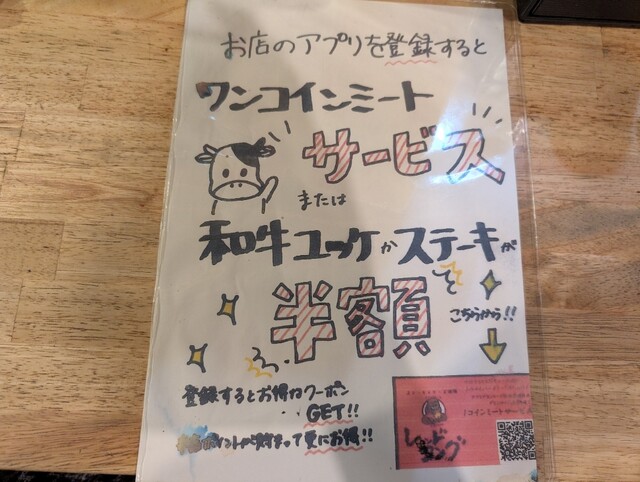 お店のアプリを登録すると
ワンコインミート
サービス
または
和牛ユッケかステーキが
半額
こちらから!!
登録するとお得なクーポン
GET!!
ポイントが貯まって更にお得!!
レッドキング